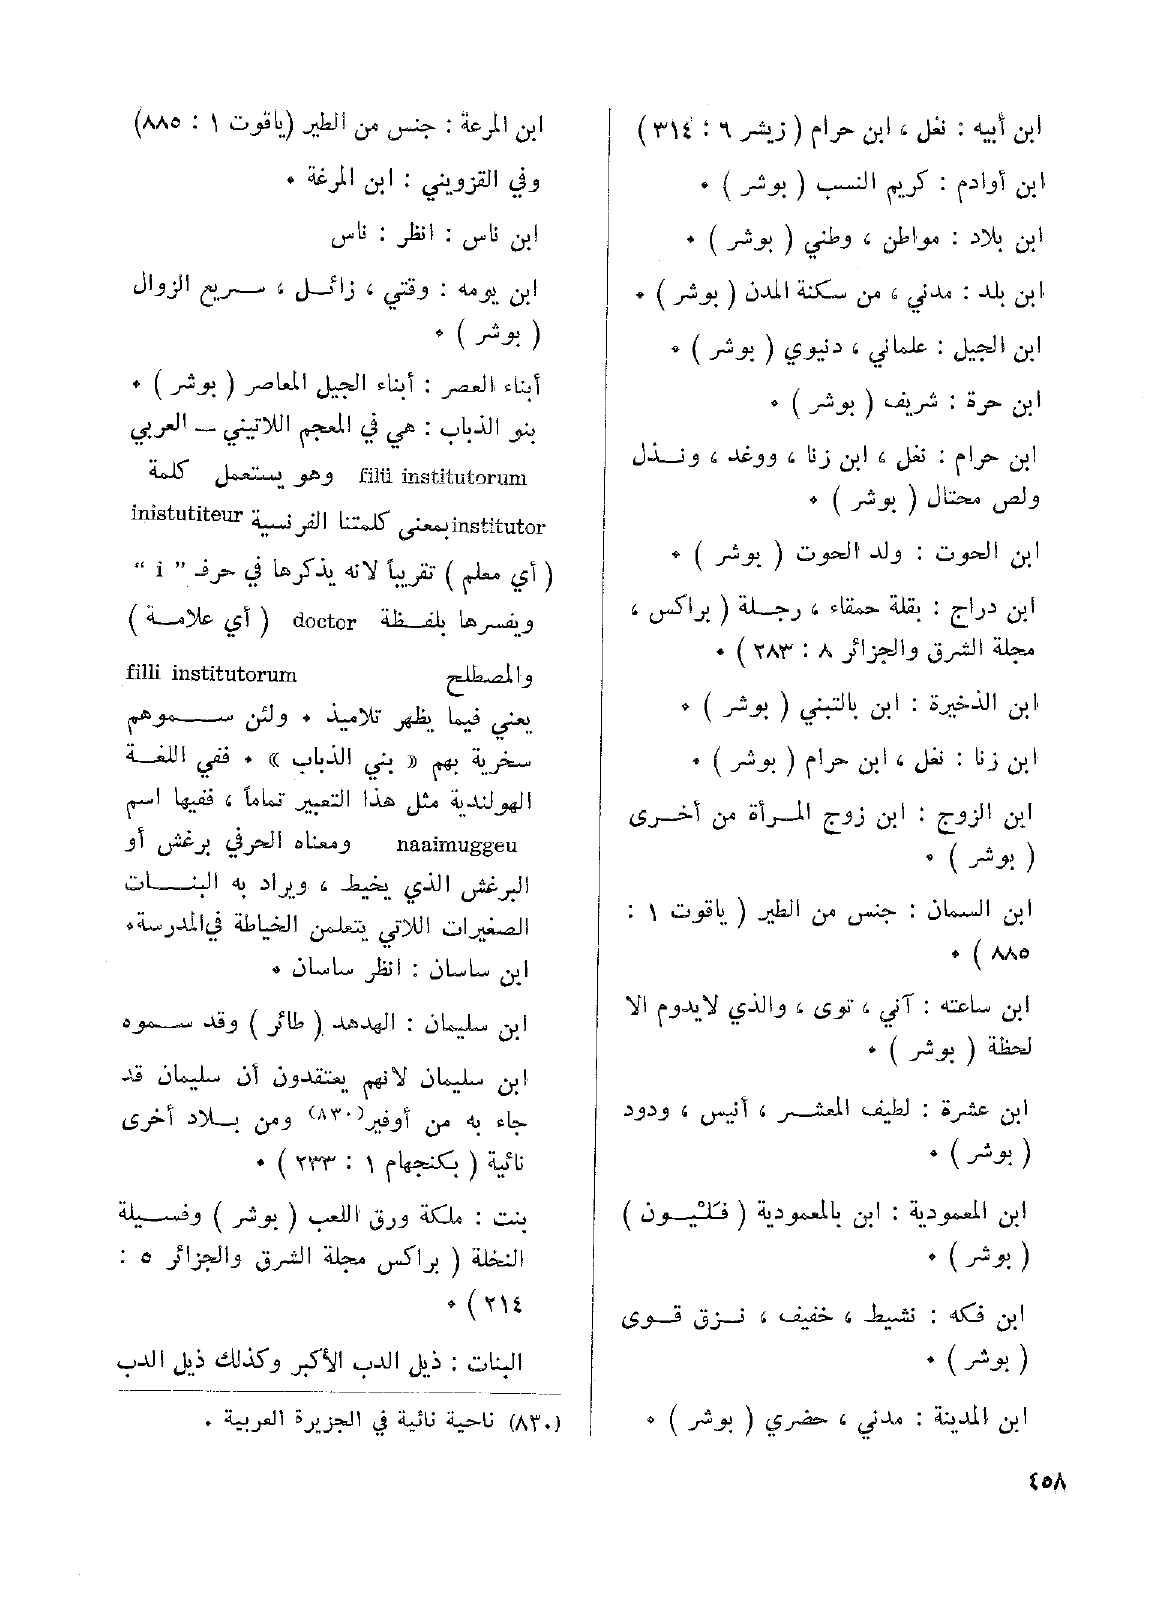 ابن أبيه : نغل ، ابن حرام ( زيشر ٦ : ٣١٤ )
ابن أوادم : كريم النسب ( بوشر ) ٠
ابن بلاد : مواطن ، وطني ( بوشر ) ٠
ابن بلد : مدني ، من سكنة المدن ( بوشر ) ٠
ابن الجيل : علماني ، دنيوي ( بوشر ) ٠
ابن حرة : شريف ( بوشر ) ٠
ابن حرام : نغل ، ابن زنا ، ووغد ، ونـذل
ولص محتال ( بوشر ) ٠
ابن الحوت : ولد الحوت ( بوشر ) ٠
ابن دراج : بقلة حمقاء ، رجـلة ( براكس ،
مجلة الشرق والجزائر ٨ : ٢٨٣ ) ٠
ابن الذخيرة : ابن بالتبني ( بوشر ) ٠
ابن زنا : نغل ، ابن حرام ( بوشر ) ٠
ابن الزوج : ابن زوج المـرأة من أخـرى
( بوشر ) ٠
ابن السمان : جنس من الطير ( ياقوت ١ :
٨٨٥ ) ٠
ابن ساعته : آني ، توى ، والذي لايدوم الا
لحظة ( بوشر ) ٠
ابن عشرة : لطيف المعشـر ، أنيس ، ودود
( بوشر ) ٠
ابن المعمودية : ابن بالمعمودية ( فـَلـْيـون )
( بوشر ) ٠
ابن فكه : نشيط ، خفيف ، نـزق قـوى
( بوشر ) ٠
ابن المدينة : مدني ، حضري ( بوشر ) ٠
ابن المرعة : جنس من الطير (ياقوت ١ : ٨٨٥)
وفي القزويني : ابن المرغة ٠
ابن ناس : انظر : ناس
ابن يومه : وقتي ، زائـل ، سـريع الزوال
( بوشر ) ٠
أبناء العصر : أبناء الجيل المعاصر ( بوشر ) ٠
بنو الذباب : هي في المعجم اللاتيني – العربي
filii institutorum وهو يستعمل كلمة
institutor بمعنى كلمتنا الفرنسية inistutiteur
( أي معلم ) تقريباً لانه يذكرها في حرف " i "
ويفسرها بلفـظة doctor ( أي علامـة )
والمصطلح filli institutorum
يعني فيما يظهر تلاميذ ٠ ولئن سـموهم
سخرية بهم « بني الذباب » ٠ ففي اللغـة
الهولندية مثل هذا التعبير تماماً ، ففيها اسم
naaimuggeu ومعناه الحرفي برغش أو
البرغش الذي يخيط ، ويراد به البنـات
الصغيرات اللاتي يتعلمن الخياطة في المدرسة٠
ابن ساسان : انظر ساسان ٠
ابن سليمان : الهدهد ( طائر ) وقد سـموه
ابن سليمان لانهم يعتقدون أن سليمان قد
جاء به من أوفير(٨٣٠) ومن بـلاد أخرى
نائية ( بكنجهام ١ : ٢٣٣ ) ٠
بنت : ملكة ورق اللعب ( بوشر ) وفسـيلة
النخلة ( براكس مجلة الشرق والجزائر ٥ :
٢١٤ ) ٠
البنات : ذيل الدب الأكبر وكذلك ذيل الدب
(٨٣٠) ناحية نائية في الجزيرة العربية .
٤٥٨